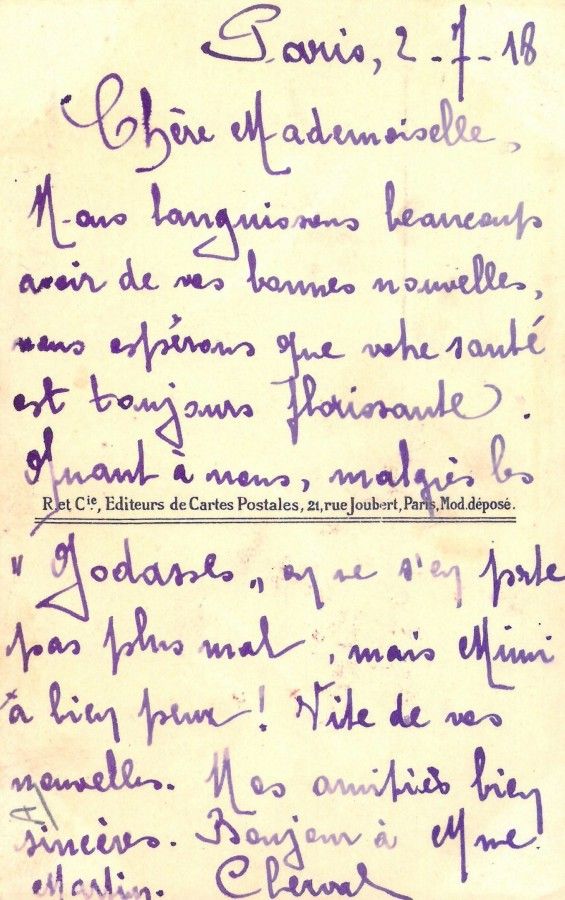 Paris, 2-7-18
Chère Mademoiselle,
Nous languissons beaucoup
avoir de vos bonnes nouvelles,
nous espérons que votre santé
est toujours florissante.
Quant à nous, malgrès les
R. et Cie., Editeurs de Cartes Postales, 21, rue Joubert, Paris, Mod. déposé.
"Godasses„ on ne s'en prte
pas plus mal, mais Mimi
a bien peur! Vite de vos
nouvelles. Nos amitiès bien
sincères. Bonjour à Mme
Martin. Cherval